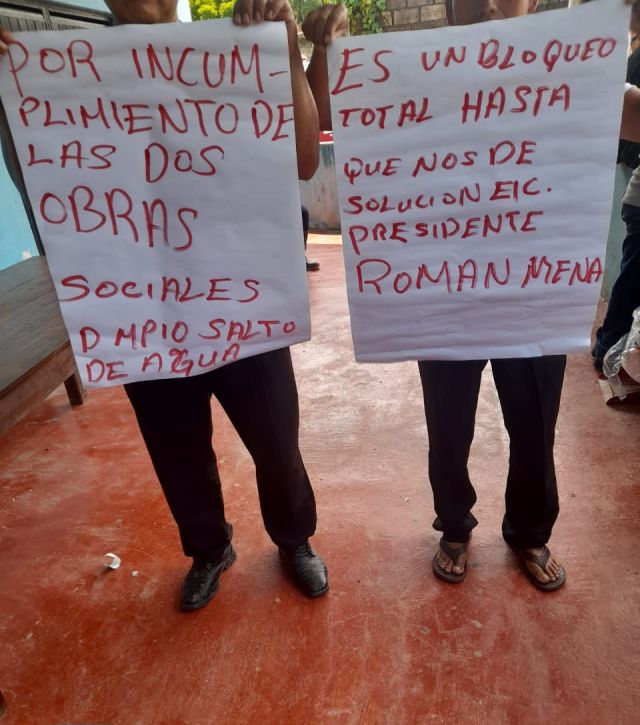 POR INCUM-
PLIMIENTO DE
LAS DOS
OBRAS
SOCIALES
D MPIO SALTO
DE AGUA
ES UN BLOQUEO
TOTAL HASTA
QUE NOS DE
SOLUCION EIC.
PRESIDENTE
ROMAN MENA